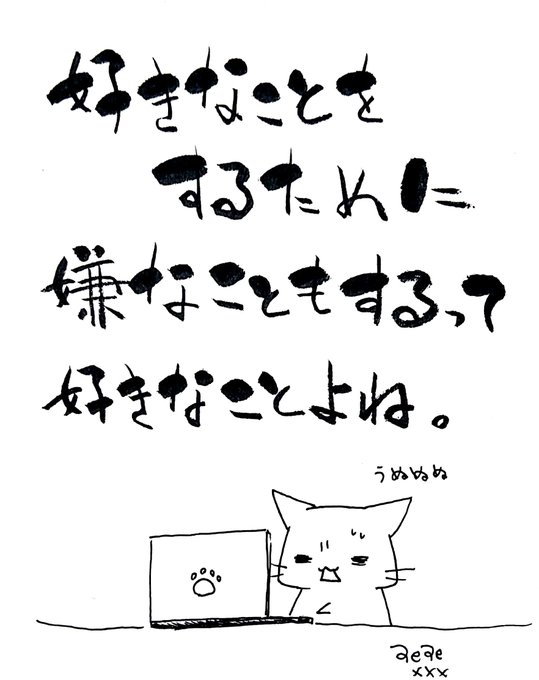 好きなことを
するために
嫌なこともするって
好きなことよね。
うぬぬぬ
aeae
xxx